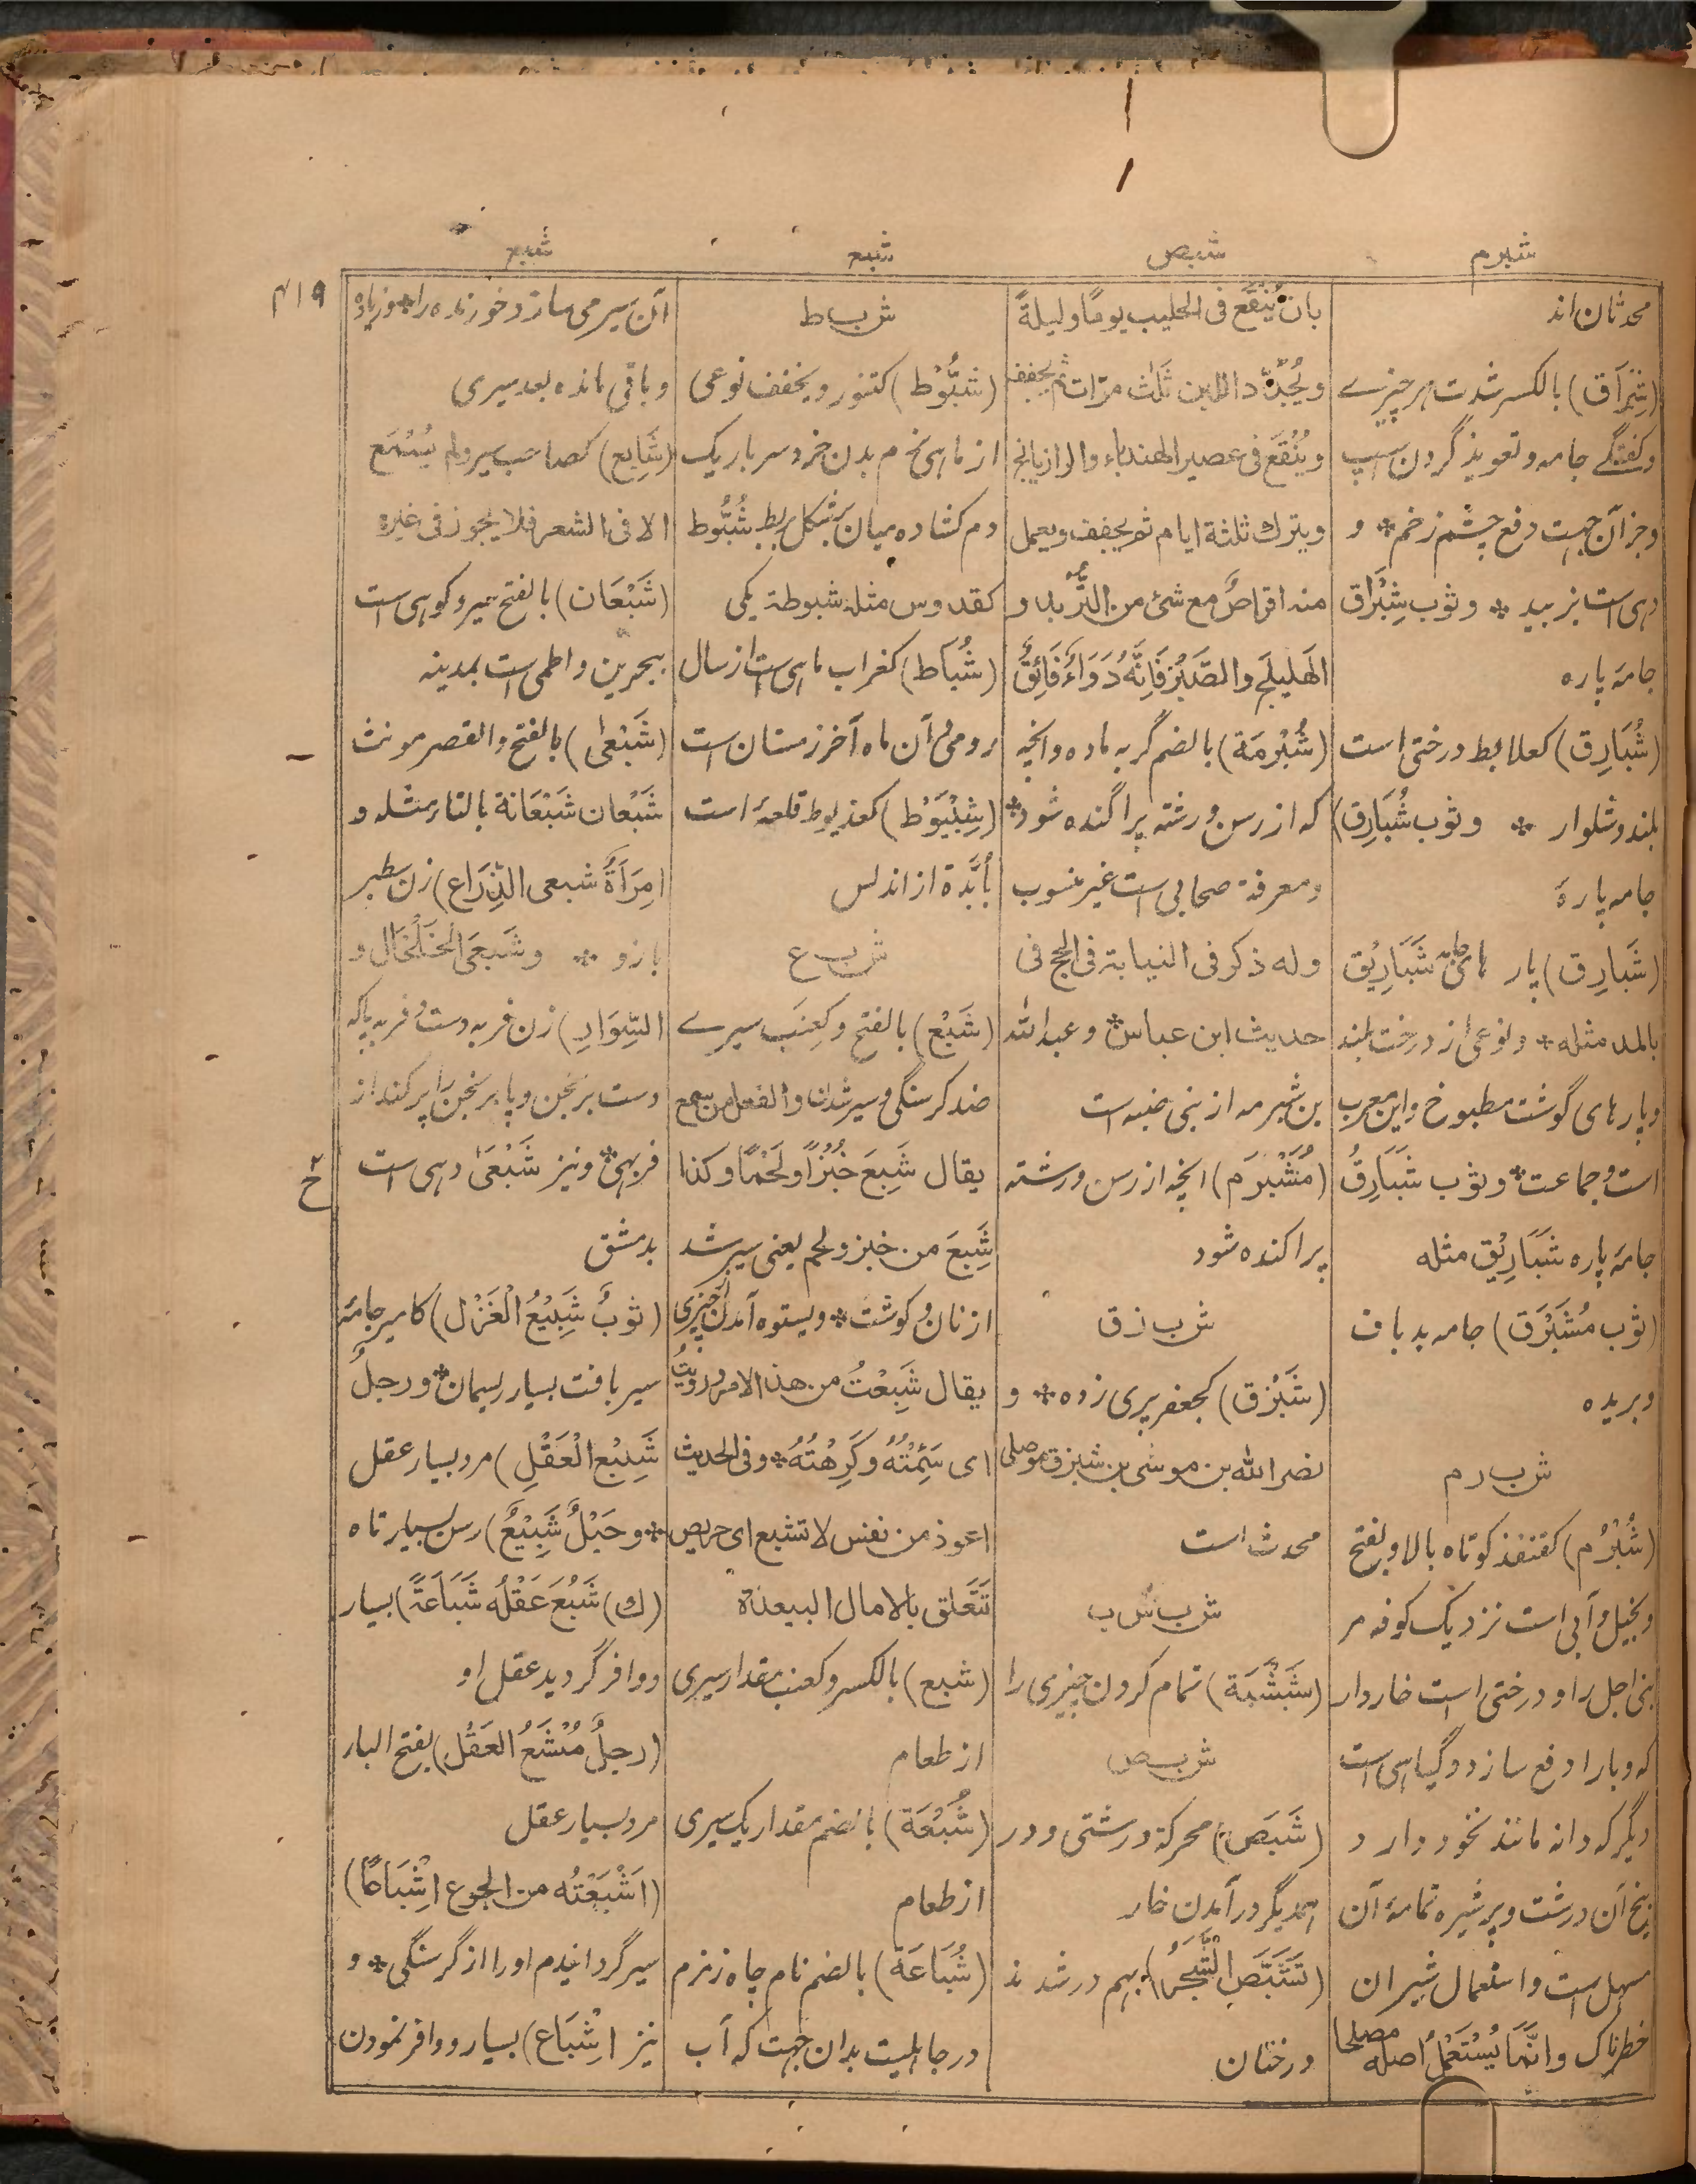 شبرم
شبص
شبع
شبع
۴۱۹
محدثان اند
(شِبْرَاق) بالکسر شدت هر چیزے
وکفتگے جامه و تعویذ گردن اسپ
وجز آن جهت دفع چشم زخم * و
دهی است بزبید * وثوب شِبْرَاق
جامۀ پاره
(شُبَارِق) کعلابط درختی است
بلند و شلوار * وثوب شُبَارِق)
جامه پارۀ
(شَبَارِق) پار شَبَارِیْق
بالمد مثله * ونوعی از درخت بلند
وپارهای گوشت مطبوخ واین معرب
است و جماعت * وثوب شَبَارِقُ
جامۀ پاره شَبَارِیْق مثله
(ثوب مُشَبْرَق) جامه بد باف
وبریده
ش ب ر م
(شُبْرُم) کقنفذ کوتاه بالا وبفتح
وبخیل و آبی است نزدیک کوفه مر
بنی اجل را و درختی است خاردار
که وبا را دفع سازد و گیاهی است
دیگر که دانه مانند نخود دارد و
بیخ آن درشت وپر شیره تمامۀ آن
مسهل است واستعمال شیر آن
خطرناک وانَّمَا یُسْتَعْمَلُ اصله مصلحا
بان یُنْقَع فی الحلیب یومًا ولیلةً
ویُجَدَّد اللبن ثَلٰث مرّات ثم یجفف
ویُنْقَع فی عصیر الهندباء والرازیانج
ویترك ثلثة ایام ثم یجفف ویعمل
منه اقراصٌ مع شیٔ من التُّرْبد و
الهَلیلَج والصَّبْر فَاِنَّهُ دَوَاءٌ فَائِقٌ
(شُبْرُمَة) بالضم گربه ماده وانچه
که از رسن و رشته پراگنده شود *
ومعرفة صحابی است غیر منسوب
وله ذکر فی النیابة فی الحج فی
حدیث ابن عباس * وعبدالله
بن شبرمه از بنی ضبه است
(مُشَبْرَم) انچه از رسن ورشته
پراکنده شود
ش ب ز ق
(شَبْزَق) کجعفر پری زده * و
نصر الله بن موسٰی بن شبزق موصلی
محدث است
ش ب ش ب
(شَبْشَبَة) تمام کردن چیزی را
ش ب ص
(شَبَص) محرکة درشتی و در
همدیگر درآمدن خار
(تَشَبَّصَ الشَّجَرُ) بهم در شدند
درختان
ش ب ط
(شَبُّوْط) کتنور ویخفف نوعی
از ماهی نرم بدن خرد سر باریک
دم کشاده میان بشکل بربط شُبُّوط
کقدوس مثله شبوطة یکی
(شُبَاط) کغراب ماهی است از سال
رومی و آن ماه آخر زمستان است
(شِبْیَوْط) کعذیوط قلعۀ است
بأُبَّدة از اندلس
ش ب ع
(شَبْع) بالفتح وکعِنَب سیرے
ضد کرسنگی و سیر شدن والفعل من سمع
یقال شَبِعَ خُبْزًا ولَحْمًا وکذا
شَبِعَ من خبز ولحم یعنی سیر شد
از نان و گوشت * وبستوه آمدن از چیزی
یقال شَبِعْتُ من هذا الامر ورَوِیْتُ
ای سَئِمْتُهُ وکَرِهْتُهُ * وفی الحدیث
اعوذ من نفس لا تشبع ای حریص
تَتَعَلّق بالامال البعیدة
(شبع) بالکسر وکعنب مقدار سیری
از طعام
(شُبْعَة) بالضم مقدار یک سیری
از طعام
(شُبَاعَة) بالضم نام چاه زمزم
در جاهلیت بدان جهت که آب
آن سیر می سازد خورنده را * وزیاده
وباقی مانده بعد سیری
(شَابِع) کصاحب سیر ولم یُسْمَع
الا فی الشعر فلا یجوز فی غیره
(شَبْعَان) بالفتح سیر و کوهی است
ببحرین واطمی است بمدینه
(شَبْعٰی) بالفتح والقصر مونث
شَبْعان شَبْعَانة بالتاء مثله و
امِرَأَةٌ شبعی الذِّرَاع) زن سطبر
بازو * وشَبعَی الخَلْخَال و
السِّوَارِ) زن فربه دست و فربه پا که
دست برنجن وپا برنجن را پر کند از
فربهی * ونیز شَبْعَیٰ دهی است
بدمشق
(ثوبٌ شَبِیْعُ الْغَزْل) کامیر جامۀ
سیر بافت بسیار ریسمان * ورجلٌ
شَبِیْع الْعَقْلِ) مرد بسیار عقل
* وحَبْلٌ شَبِیْعٌ) رسن بسیار تاه
(ك) شَبُعَ عَقْلُه شَبَاعَةً) بسیار
ووافر گردید عقل او
(رجلٌ مُشْبَعُ العَقْل) بفتح الباء
مرد بسیار عقل
(اَشْبَعْتُه من الجوع اِشْبَاعًا)
سیر گردانیدم او را از گرسنگی * و
نیز اِشْبَاع) بسیار ووافر نمودن